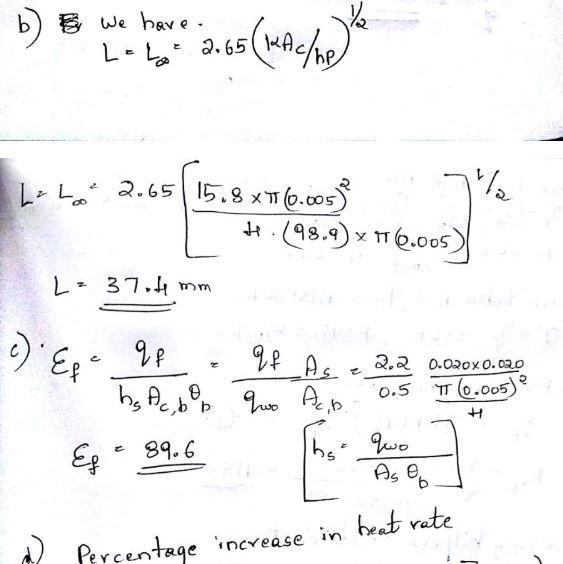 b) We have.
L = L∞ = 2.65 (kAc/hP)^1/2
L = L∞ = 2.65 [15.8 × π(0.005)^2 / 4 · (98.9) × π(0.005)]^1/2
L = 37.4 mm
c) Ɛf = qf / hs Ac,b θb = qf / qwo As / Ac,b = 2.2 / 0.5 0.020×0.020 / π(0.005)^2 / 4
Ɛf = 89.6 [hs = qwo / As θb]
d) Percentage increase in heat rate